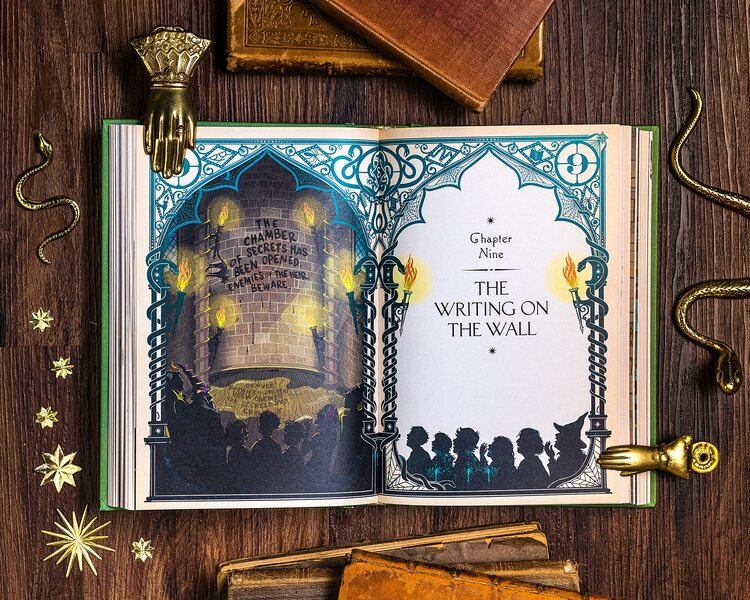 THE
CHAMBER
OF SECRETS HAS
BEEN OPENED.
ENEMIES OF THE HEIR,
BEWARE.
9
Chapter
Nine
THE
WRITING ON
THE WALL